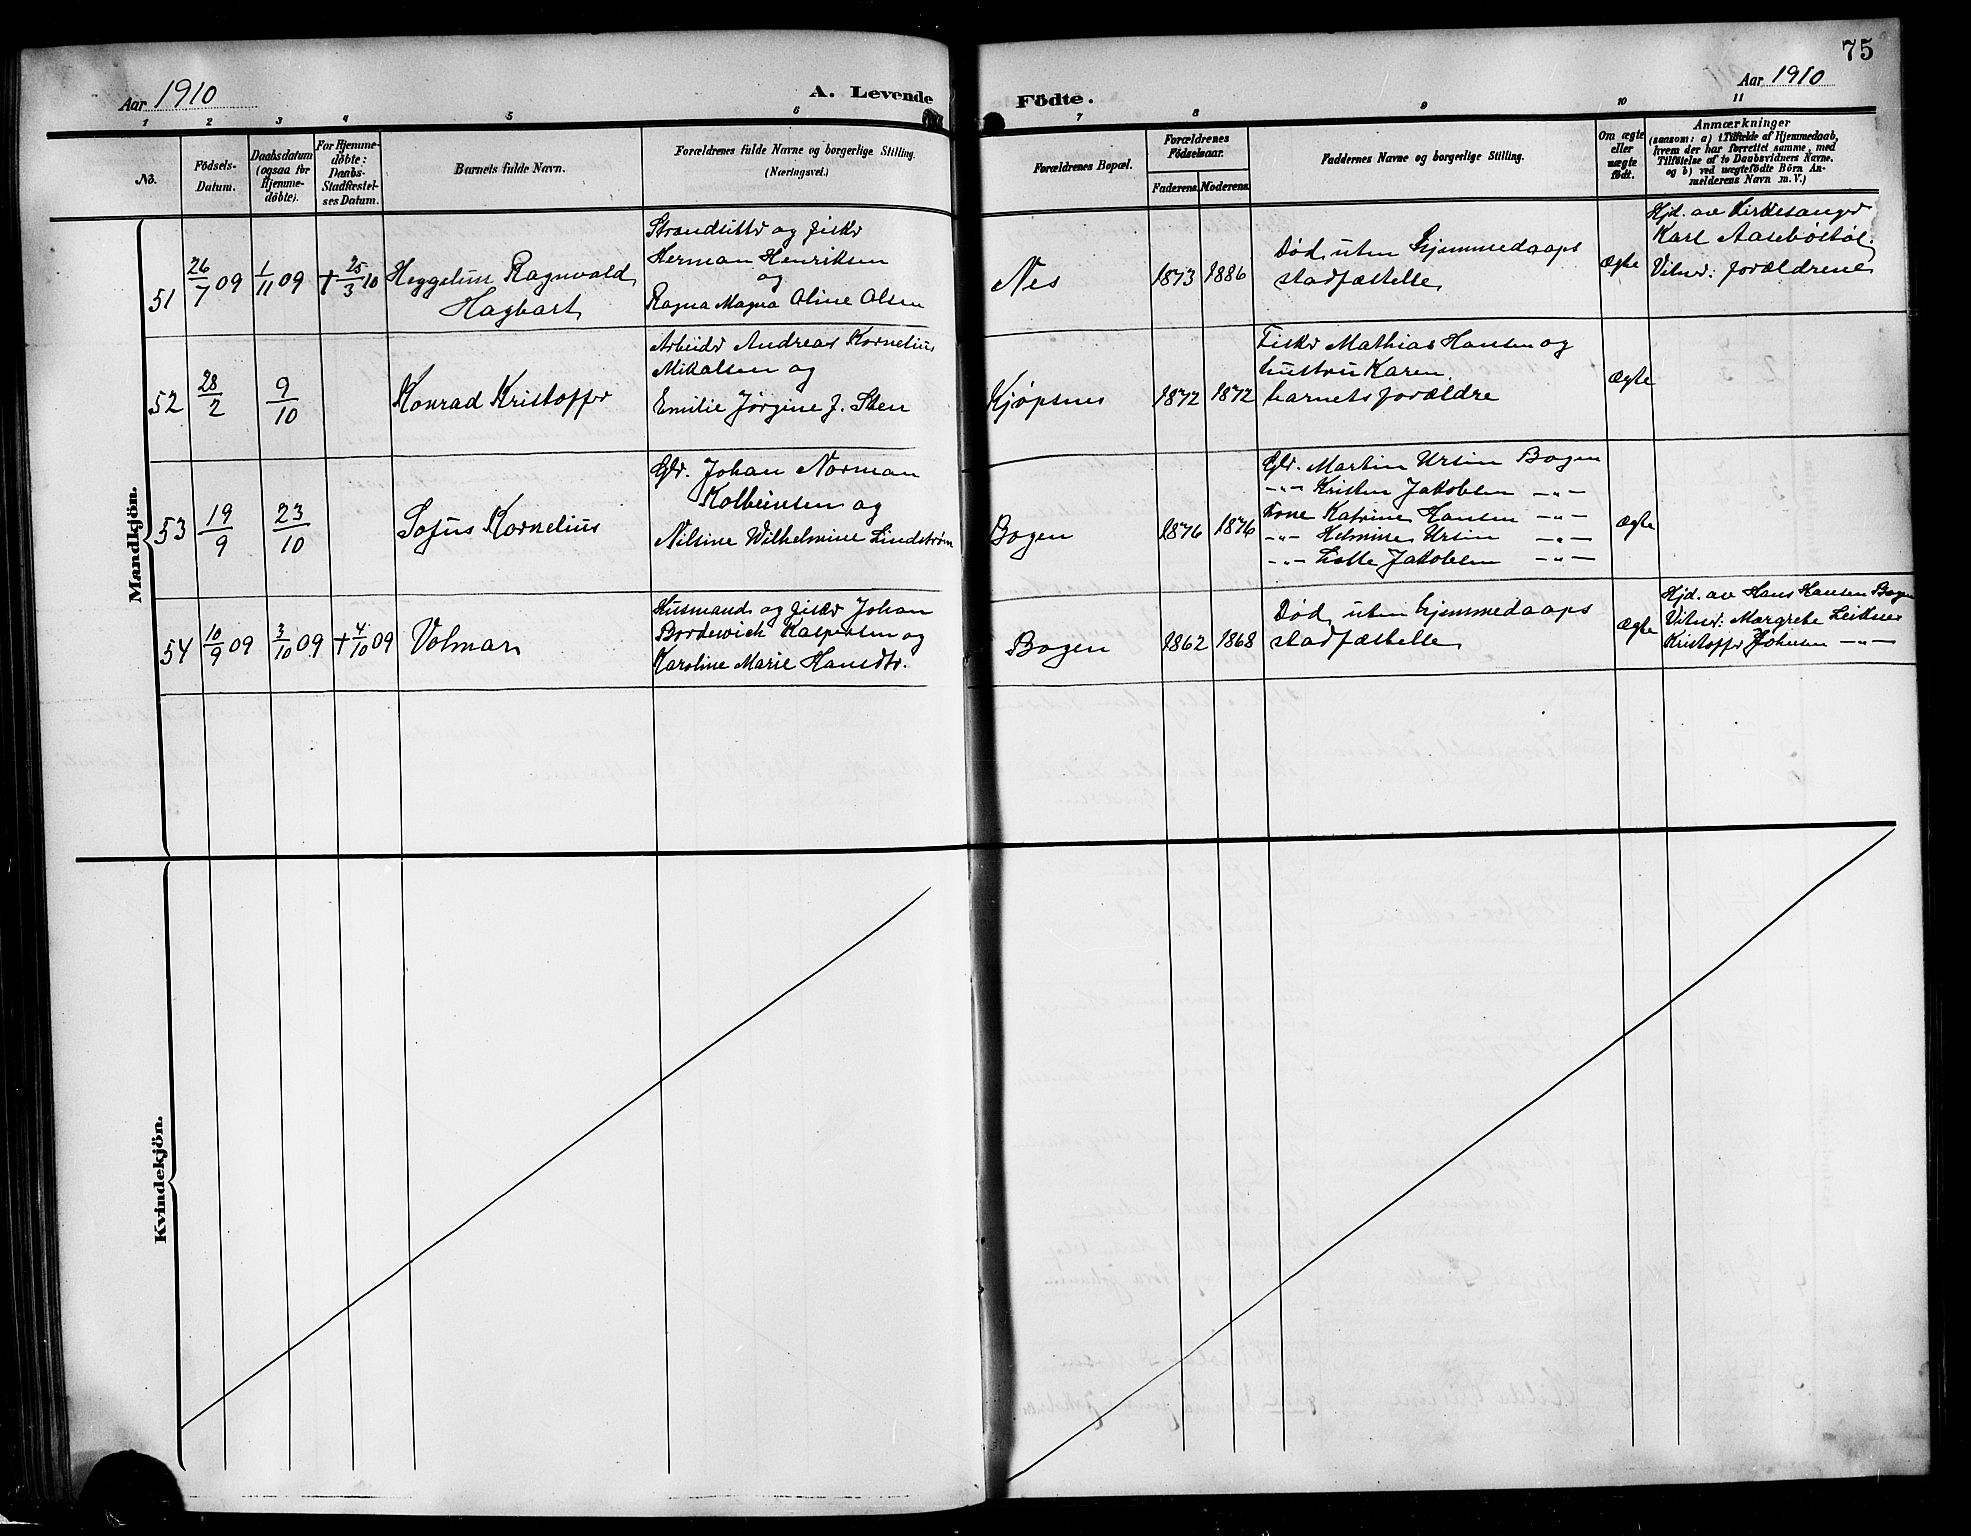 75
Aar 1910
A. Levende
Födte.
Aar 1910
1 2 3 4 5 6 7 8 9 10 11
No.
Födsels-
Datum.
Daabsdatum
(ogsaa for
Hjemme-
døbte).
For Hjemme-
døbte:
Daabs-
Stadfæstel-
ses Datum.
Barnets fulde Navn.
Forældrenes fulde Navne og borgerlige Stilling.
(Næringsvei.)
Forældrenes Bopæl.
Forældrenes
Födselsaar.
Faderens.
Moderens.
Faddernes Navne og borgerlige Stilling.
Om ægte
eller
uægte
født.
Anmærkninger
(saasom: a) i Tilfælde af Hjemmedaab,
hvem der har forrettet samme, med
Tilföielse af to Daabsvidners Navne,
og b) ved uægtefödte Börn An-
melderens Navn m. V.)
Mandkjön.
51
26/7 09
1/11 09
+ 25/3 10
Heggelius Ragnvald
Hagbart
Strandsittr og fiskr
Herman Henriksen
og
Ragna Magna Oline Olsen
Nes
1873
1886
Død uten hjemmedaaps
stadfæstelse
Ægte
Hjd. av Kirkesanger
Karl Aasebøstøl.
Vitnr: forældrene
52
28/2
9/10
Konrad Kristoffer
Arbeidr Andreas Kornelius
Mikalsen og
Emilie Jørgine J. Sten
Kjøpsnes
1872
1872
Fiskr Mathias Hansen og
hustru Karen
barnets forældre
ægte
53
19/9
23/10
Sofus Kornelius
Gbr. Johan Norman
Kolbeinsen og
Nilsine Wilhelmine Lindstrøm
Bogen
1876
1876
Gbr. Martin Ursin Bogen
—"— Kristen Jakobsen —"—
Kone Katrine Hansen —"—
—"— Helmine Ursin —"—
—"— Lotte Jakobsen —"—
ægte
54
10/9 09
3/10 09
+ 4/10 09
Volmar
Husmand og fiskr Johan
Bordewich Kaspersen og
Karoline Marie Hansdtr.
Bogen
1862
1868
Død uten hjemmedaaps
stadfæstelse
Ægte
Hjd. av Hans Hansen Bogen
Vitnr: Margrete
Kristoffer Johnsen —"—
Kvindekjön.